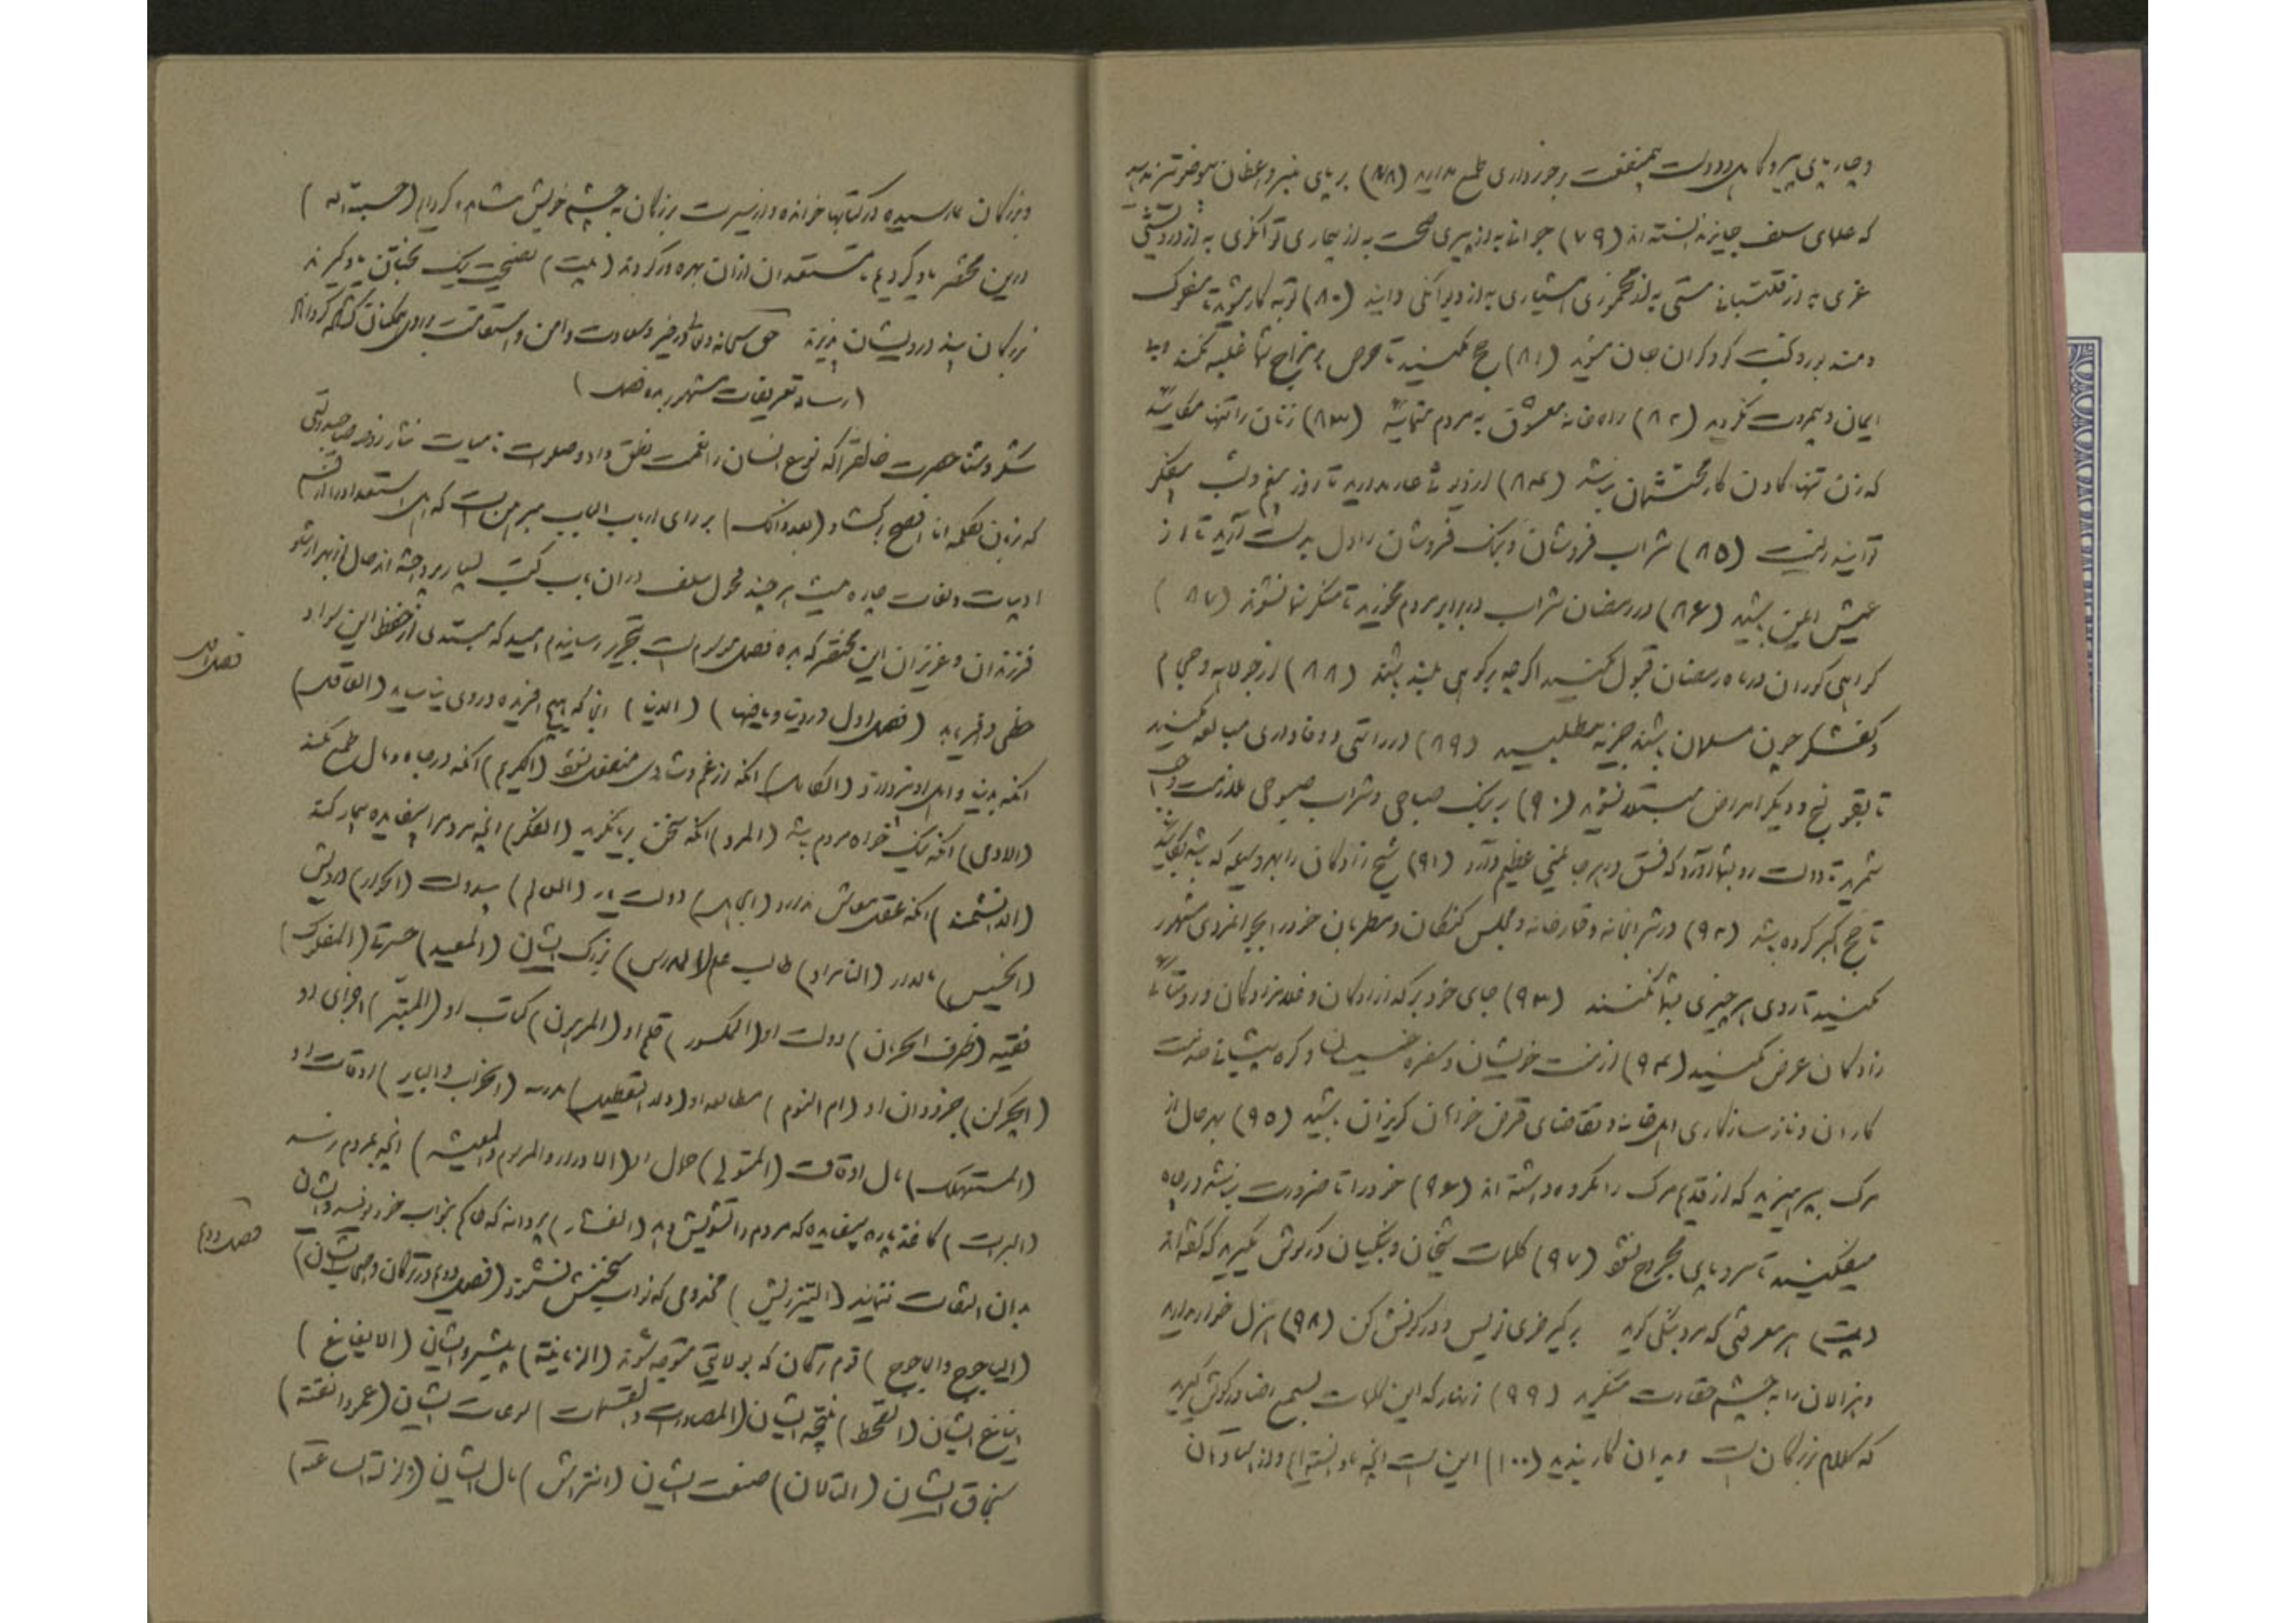 و چارپای پیر و کاهل و دولت بی‌منفعت برخورداری طمع مدارید (۷۸) بر پای منبر واعظان بی‌وضو تیز مدهید
که علمای سلف جایز ندانسته‌اند (۷۹) جوانی به از پیری صحت به از بیماری توانگری به از درویشی
غری به از قلتبانی مستی به از مخموری هشیاری به از دیوانگی دانید (۸۰) توبه کار مشوید تا مفلوک
و مندبور و بخت کور و گران جان مشوید (۸۱) حج مکنید تا حرص بر مزاج شما غلبه نکند و بی
ایمان و بیمروت نگردید (۸۲) راه خانه معشوق به مردم منمائید (۸۳) زنان را تنها مگایید
که زن تنها گادن کار محتشمان نباشد (۸۴) از دیوثی عار مدارید تا روز بیغم و شب بیفکر
توانید زیست (۸۵) شراب فروشان و بنگ فروشان را دل بدست آرید تا از
عیش ایمن باشید (۸۶) در رمضان شراب در برابر مردم مخورید تا منکر شما نشوند (۸۷)
گواهی کوران در ماه رمضان قبول مکنید اگرچه بر کوهی بلند باشند (۸۸) از جولاهه و حجام
و کفشگر چون مسلمان باشند جزیه مطلبید (۸۹) در راستی و وفاداری مبالغه مکنید
تا بقولنج و دیگر امراض مبتلا نشوید (۹۰) بر بنگ صباحی و شراب صبوحی ملازمت واجب
شمرید تا دولت رو بشما آورد که فسق در هر جا یمنی عظیم دارد (۹۱) شیخ زادگان را بهر وسیله که باشد بگایید
تا حج اکبر کرده باشید (۹۲) در شرابخانه و قمارخانه و مجلس کنگان و مطربان خود را بجوانمردی مشهور
مکنید تا روی هر چیزی بشما نکنند (۹۳) جای خود بر گدازادگان و غلامزادگان و روستائی
زادگان عرض مکنید (۹۴) از منت خویشان و سفره خسیسان و گره پیشانی خدمت
کاران و ناسازگاری اهل خانه و تقاضای قرض خواهان گریزان باشید (۹۵) بهر حال از
مرگ بپرهیزید که از قدیم مرگ را مکروه داشته‌اند (۹۶) خود را تا ضرورت نباشد در چاه
میفکنید تا سر و پای مجروح نشود (۹۷) کلمات شیخان و بنگیان در گوش مگیرید که گفته‌اند
(بیت) هر معرفتی که مرد بنگی گوید بر کیر خری نویس و در کونش کن (۹۸) هزل خوار مدارید
و هزالان را به چشم حقارت منگرید (۹۹) زنهار که این کلمات بسمع رضا در گوش گیرید
که کلام بزرگان است و بدان کار بندید (۱۰۰) این است آنچه ما دانسته‌ایم و از استادان
و بزرگان بما رسیده و در کتابها خوانده و از سیرت بزرگان به چشم خویش مشاهده کرده‌ایم (حسبة لله)
درین مختصر یاد کردیم تا مستعدان از آن بهره‌ور گردند (بیت) نصیحت نیک بختان یاد گیرند
بزرگان پند درویشان پذیرند حق سبحانه و تعالی در خیر و سعادت و امن و استقامت بروی همگنان گشاده گرداناد
(رساله تعریفات مشهور به ده فصل)
شکر و ثنا حضرت خالقرا که نوع انسان را نعمت نطق داد و صلوات نامیات نثار روضه صاحبدولتی
که زبان بکلمه انا افصح برگشاد (بعد ذالک) بر رای ارباب الباب مبرهن است که اهل استعداد را از قسم
ادبیات و لغات چاره نیست هر چند فحول سلف در آن باب کتب بسیار پرداخته‌اند حالی از بهر ارشاد
فرزندان و عزیزان این مختصر که به ده فصل موسوم است بتحریر رسانیدم امید که مبتدی از حفظ این سواد
فصل اول
حظی وافر یابد (فصل اول در دنیا و مافیها) (الدنیا) آنجا که هیچ آفریده در وی نیاساید (العاقل)
آنکه بدنیا و اهل او نپردازد (الکامل) آنکه از غم و شادی منفعل نشود (الکریم) آنکه در جاه و مال طمع نکند
(الادمی) آنکه نیک خواه مردم باشد (المرد) آنکه سخن بریا نگوید (الفکر) آنچه مردم را بیفایده بیمار کند
(الدانشمند) آنکه عقل معاش ندارد (الجاهل) دولت یار (العالم) بیدولت (الجواد) درویش
(الخسیس) مالدار (النامراد) طالب علم (المدرس) بزرگ ایشان (المعید) حسرتی (المفلوک)
فقیه (ظرف الحرمان) دوات او (المکسور) قلم او (المرهون) کتاب او (المبتر) اجزای او
(الچرکن) جزودان او (ام النوم) مطالعه او (دار التعطیل) مدرسه (الخراب و البایر) اوقات او
(المستهلک) مال اوقاف (المتولی) حلال او (الادرار و المرسوم و المعیشه) آنچه بمردم نرسد
(البرات) کاغذ پاره بیفایده که مردم را تشویش دهد (الفشار) پروانه که حکام بنواب خود نویسند و ایشان
فصل دوم
بدان التفات ننمایند (التیز ریش) مخدومی که نواب سخنش نشنوند (فصل دوم در ترکان و اصحاب ایشان)
(الیاجوج و الماجوج) قوم ترکان که بولایتی متوجه شوند (الزبانیه) پیشرو ایشان (الایغاغ)
ایناغ ایشان (القحط) نتیجه ایشان (المصادرات و القسمات) سوغات ایشان (عمود الفتنه)
سنجاق ایشان (التالان) صنعت ایشان (التراش) مال ایشان (زلزلة الساعة)